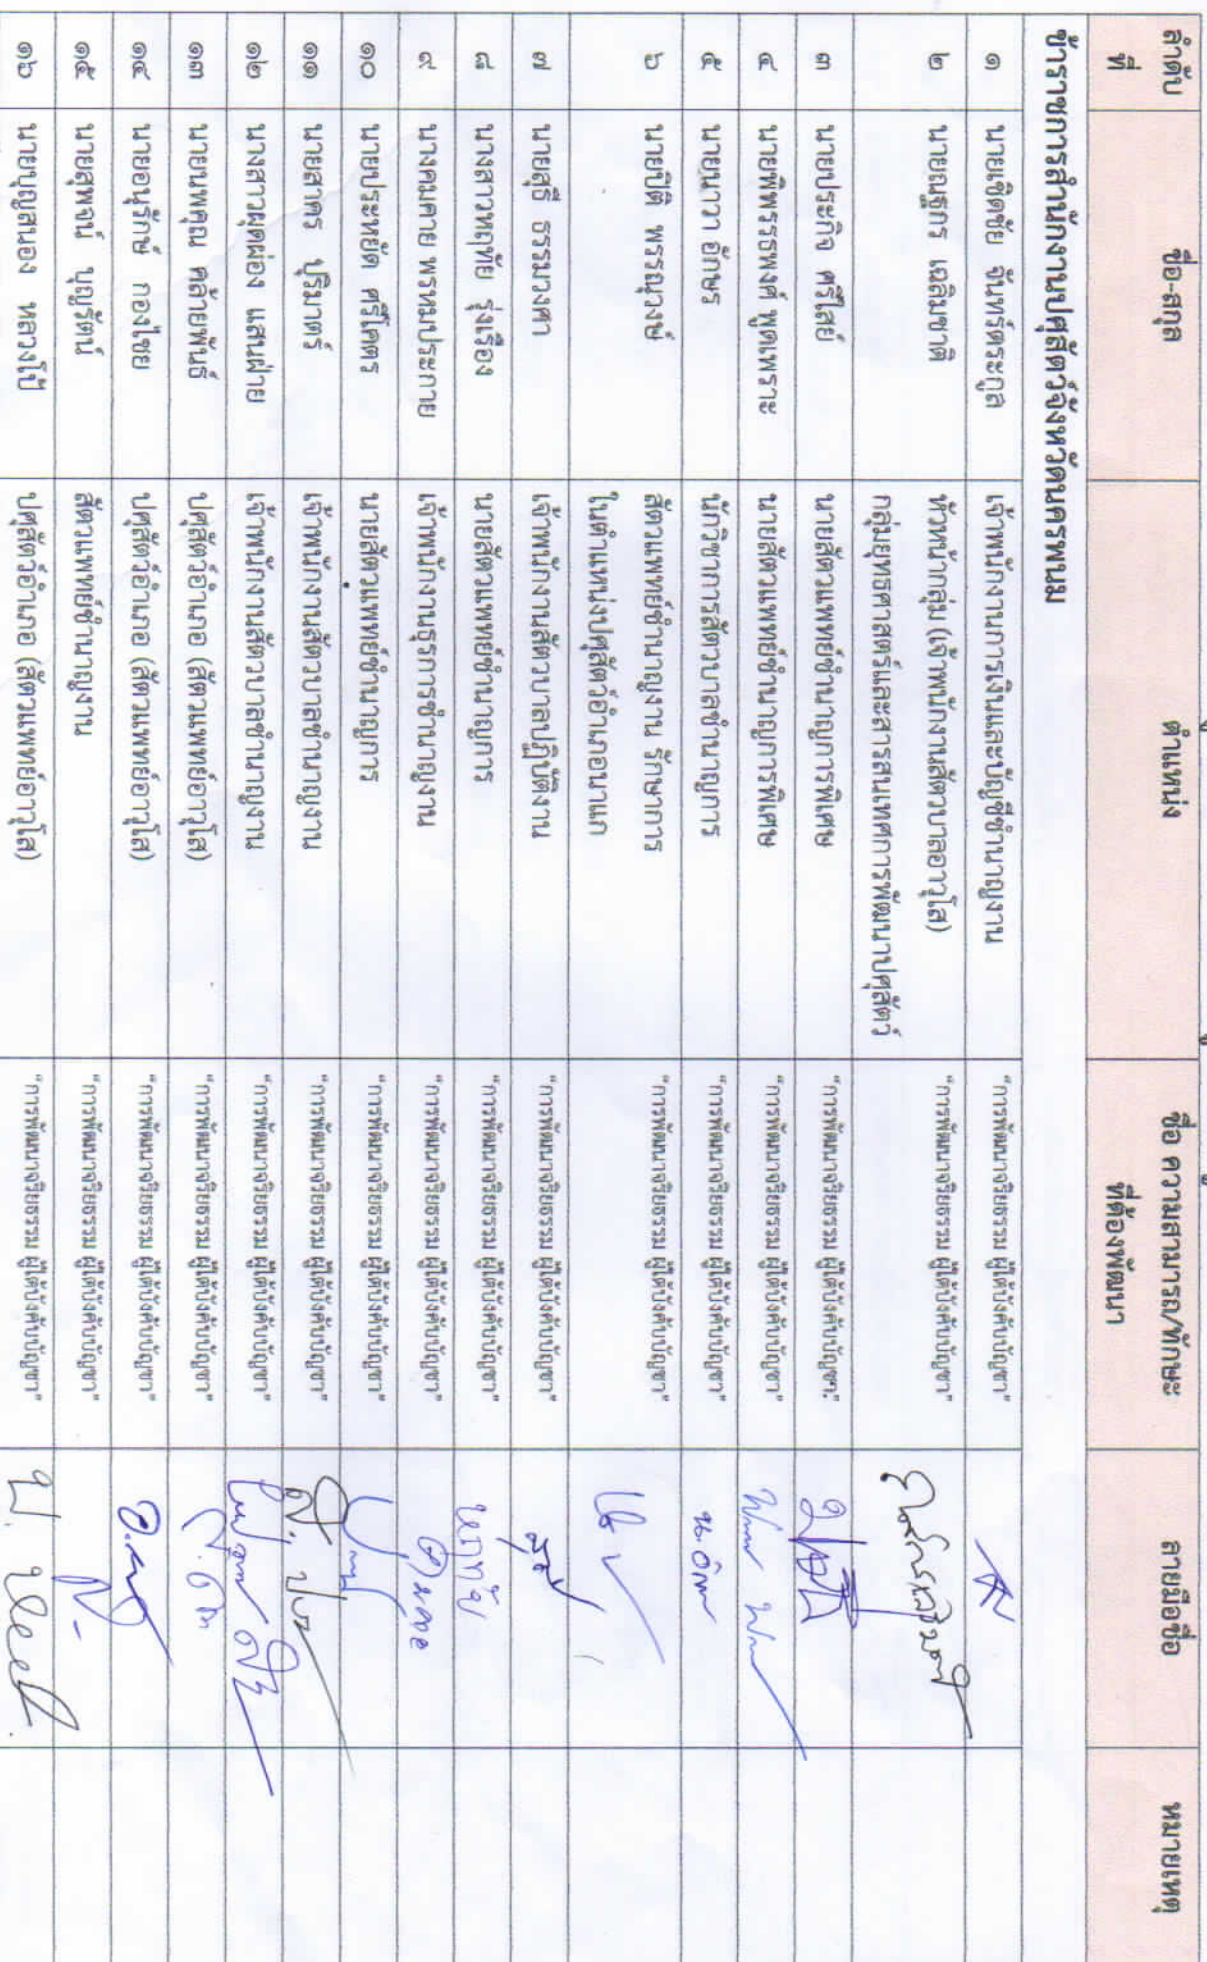 ลำดับ
ที่
ชื่อ-สกุล
ตำแหน่ง
ชื่อ ความสามารถ/ทักษะ
ที่ต้องพัฒนา
ลายมือชื่อ
หมายเหตุ
ข้าราชการสำนักงานปศุสัตว์จังหวัดนครพนม
๑ นายเชิดชัย จันทร์ตระกูล เจ้าพนักงานการเงินและบัญชีชำนาญงาน "การพัฒนาจริยธรรม ผู้ใต้บังคับบัญชา"
๒ นายณฐกร เฉลิมชาติ หัวหน้ากลุ่ม (เจ้าพนักงานสัตวบาลอาวุโส) "การพัฒนาจริยธรรม ผู้ใต้บังคับบัญชา"
กลุ่มยุทธศาสตร์และสารสนเทศการพัฒนาปศุสัตว์
๓ นายประกิจ ศรีไสย์ นายสัตวแพทย์ชำนาญการพิเศษ "การพัฒนาจริยธรรม ผู้ใต้บังคับบัญชา"
๔ นายพิพรรธพงศ์ พูดเพราะ นายสัตวแพทย์ชำนาญการพิเศษ "การพัฒนาจริยธรรม ผู้ใต้บังคับบัญชา"
๕ นายนาวา อักษร นักวิชาการสัตวบาลชำนาญการ "การพัฒนาจริยธรรม ผู้ใต้บังคับบัญชา"
๖ นายปิติ พรรณุวงษ์ สัตวแพทย์ชำนาญงาน รักษาการ "การพัฒนาจริยธรรม ผู้ใต้บังคับบัญชา"
ในตำแหน่งปศุสัตว์อำเภอนาแก
๗ นายสุธี ธรรมวงศา เจ้าพนักงานสัตวบาลปฏิบัติงาน "การพัฒนาจริยธรรม ผู้ใต้บังคับบัญชา"
๘ นางสาวหฤทัย รุ่งเรือง นายสัตวแพทย์ชำนาญการ "การพัฒนาจริยธรรม ผู้ใต้บังคับบัญชา" หฤทัย
๙ นางคมคาย พรหมประกาย เจ้าพนักงานธุรการชำนาญงาน "การพัฒนาจริยธรรม ผู้ใต้บังคับบัญชา"
๑๐ นายประหยัด ศรีโคตร นายสัตวแพทย์ชำนาญการ "การพัฒนาจริยธรรม ผู้ใต้บังคับบัญชา"
๑๑ นายสาคร ปุริมาตร์ เจ้าพนักงานสัตวบาลชำนาญงาน "การพัฒนาจริยธรรม ผู้ใต้บังคับบัญชา"
๑๒ นางสาวผุดผ่อง แสนฝ่าย เจ้าพนักงานสัตวบาลชำนาญงาน "การพัฒนาจริยธรรม ผู้ใต้บังคับบัญชา"
๑๓ นายนพคุณ คล้ายพันธ์ ปศุสัตว์อำเภอ (สัตวแพทย์อาวุโส) "การพัฒนาจริยธรรม ผู้ใต้บังคับบัญชา"
๑๔ นายอนุรักษ์ กองไชย ปศุสัตว์อำเภอ (สัตวแพทย์อาวุโส) "การพัฒนาจริยธรรม ผู้ใต้บังคับบัญชา"
๑๕ นายสุพจน์ บุญรัตน์ สัตวแพทย์ชำนาญงาน "การพัฒนาจริยธรรม ผู้ใต้บังคับบัญชา"
๑๖ นายบุญสนอง หลวงโป้ ปศุสัตว์อำเภอ (สัตวแพทย์อาวุโส) "การพัฒนาจริยธรรม ผู้ใต้บังคับบัญชา"